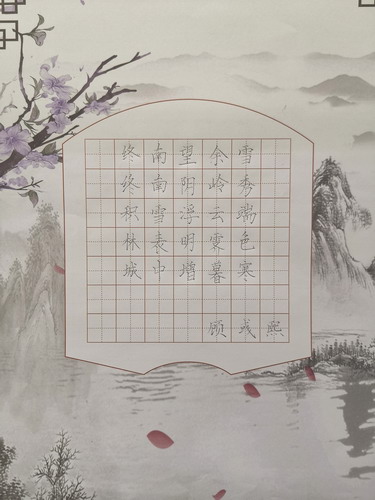 终南望余雪
终南阴岭秀
积雪浮云端
林表明霁色
城中增暮寒
顾 熙